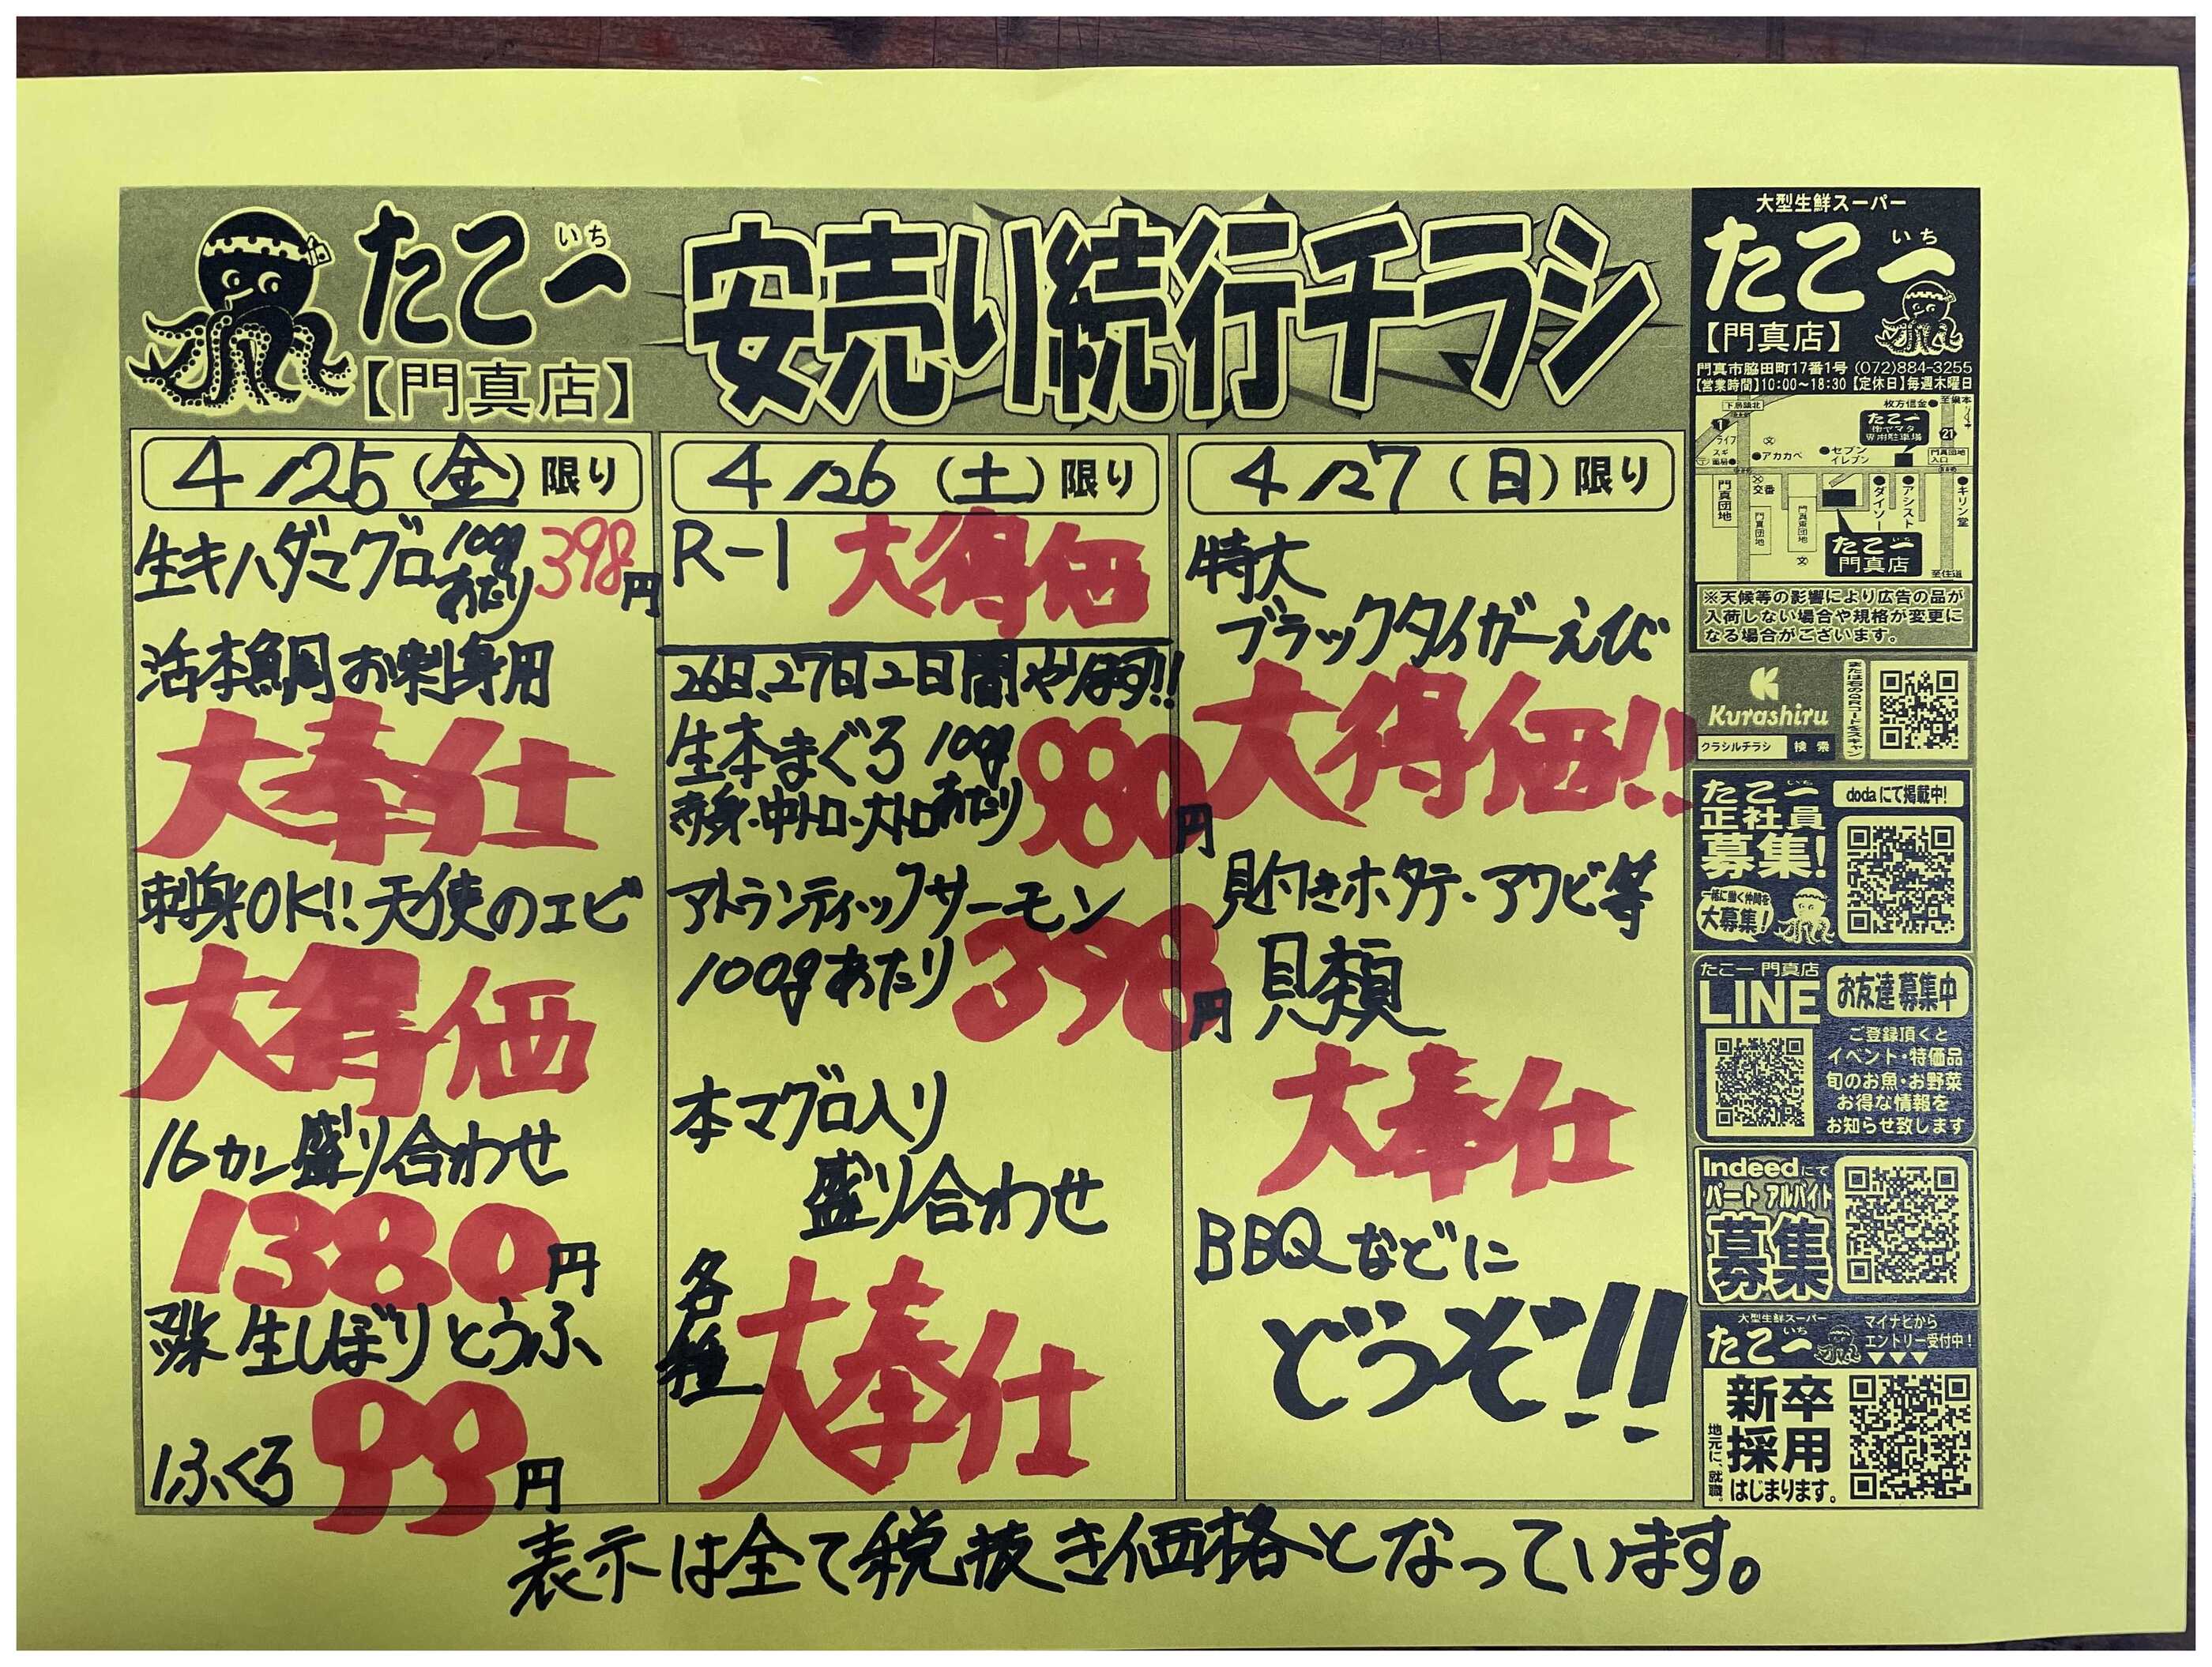 たこ一
いち
【門真店】
安売り続行チラシ
4/25(金)限り
生キハダマグロ 100gあたり 398円
活本鯛お刺身用
大奉仕
刺身OK!!天使のエビ
大得価
16カン盛り合わせ
1380円
生しぼりとうふ
1ふくろ 99円
4/26(土)限り
R-1 大得価
26日、27日2日間やります!!
生本まぐろ 100g
赤身・中トロ・大トロあたり 980円
アトランティックサーモン
100gあたり 398円
本マグロ入り
盛り合わせ
各種 大奉仕
4/27(日)限り
特大
ブラックタイガーえび
大得価!!
貝付きホタテ・アワビ等
貝類
大奉仕
BBQなどに
どうぞ!!
表示は全て税抜き価格となっています。
大型生鮮スーパー
たこ一
いち
【門真店】
門真市脇田町17番1号 (072)884-3255
【営業時間】10:00~18:30【定休日】毎週木曜日
枚方信金
たこ一
専用駐車場
1
ライフ
21
アカカベ
セブンイレブン
門真団地入口
門真団地
交番
ダイソー
アシスト
キリン堂
たこ一
門真店
至住道
※天候等の影響により広告の品が
入荷しない場合や規格が変更に
なる場合がございます。
Kurashiru
クラシルチラシ 検索
または右のQRコードをスキャン
たこ一
いち
正社員
募集!
dodaにて掲載中!
一緒に働く仲間を
大募集!
たこ一 門真店
LINE
お友達募集中
ご登録頂くと
イベント・特価品
旬のお魚・お野菜
お得な情報を
お知らせ致します
Indeedにて
パート アルバイト
募集
大型生鮮スーパー
たこ一
いち
マイナビから
エントリー受付中!
新卒
採用
地元に、就職。
はじまります。